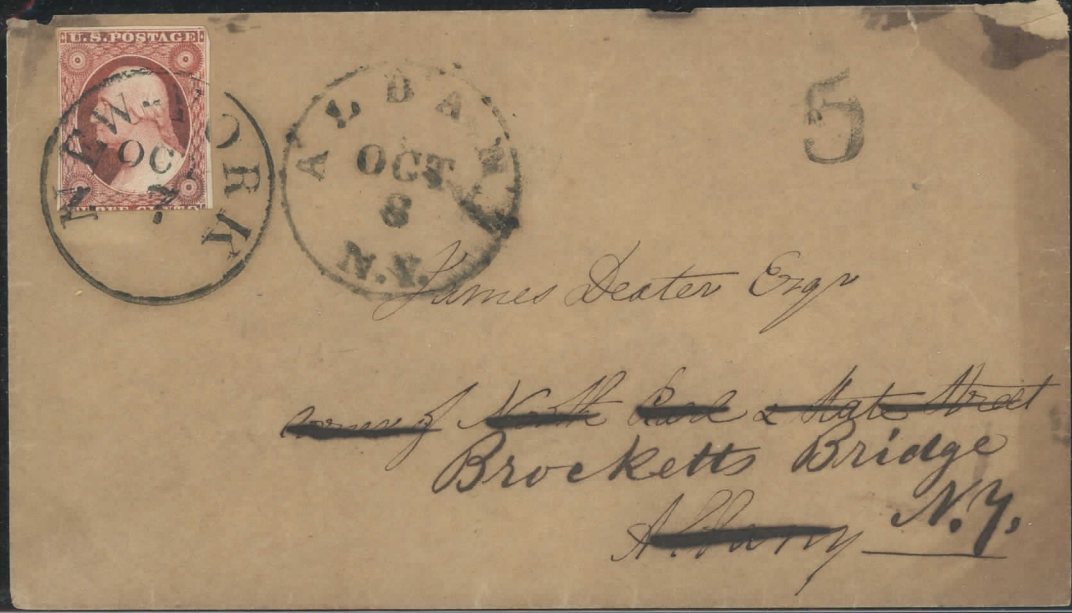 U.S. POSTAGE
NEW YORK
OCT
ALBANY
OCT
8
N.Y.
5
James Dexter Esqr
corner of North Pearl & State Street
Brocketts Bridge
Albany N.Y.